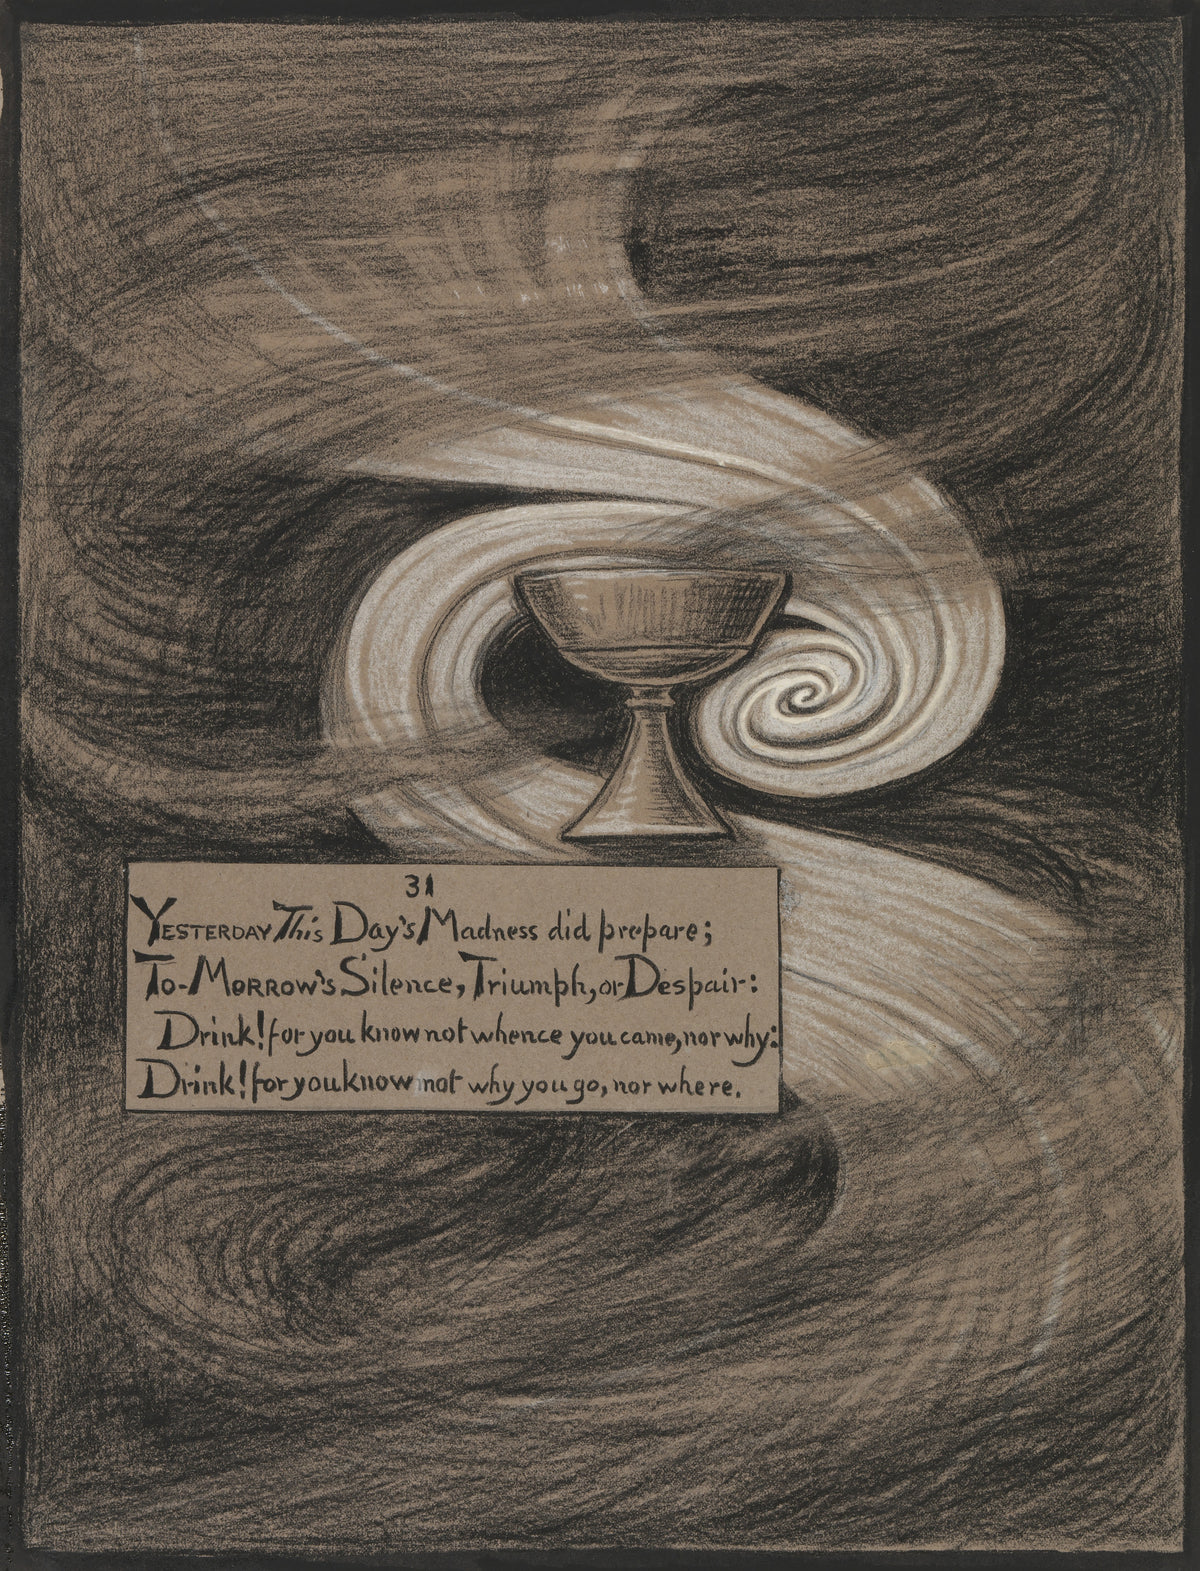 31
YESTERDAY This Day's Madness did prepare;
To-MORROW'S Silence, Triumph, or Despair:
Drink! for you know not whence you came, nor why:
Drink! for you know not why you go, nor where.